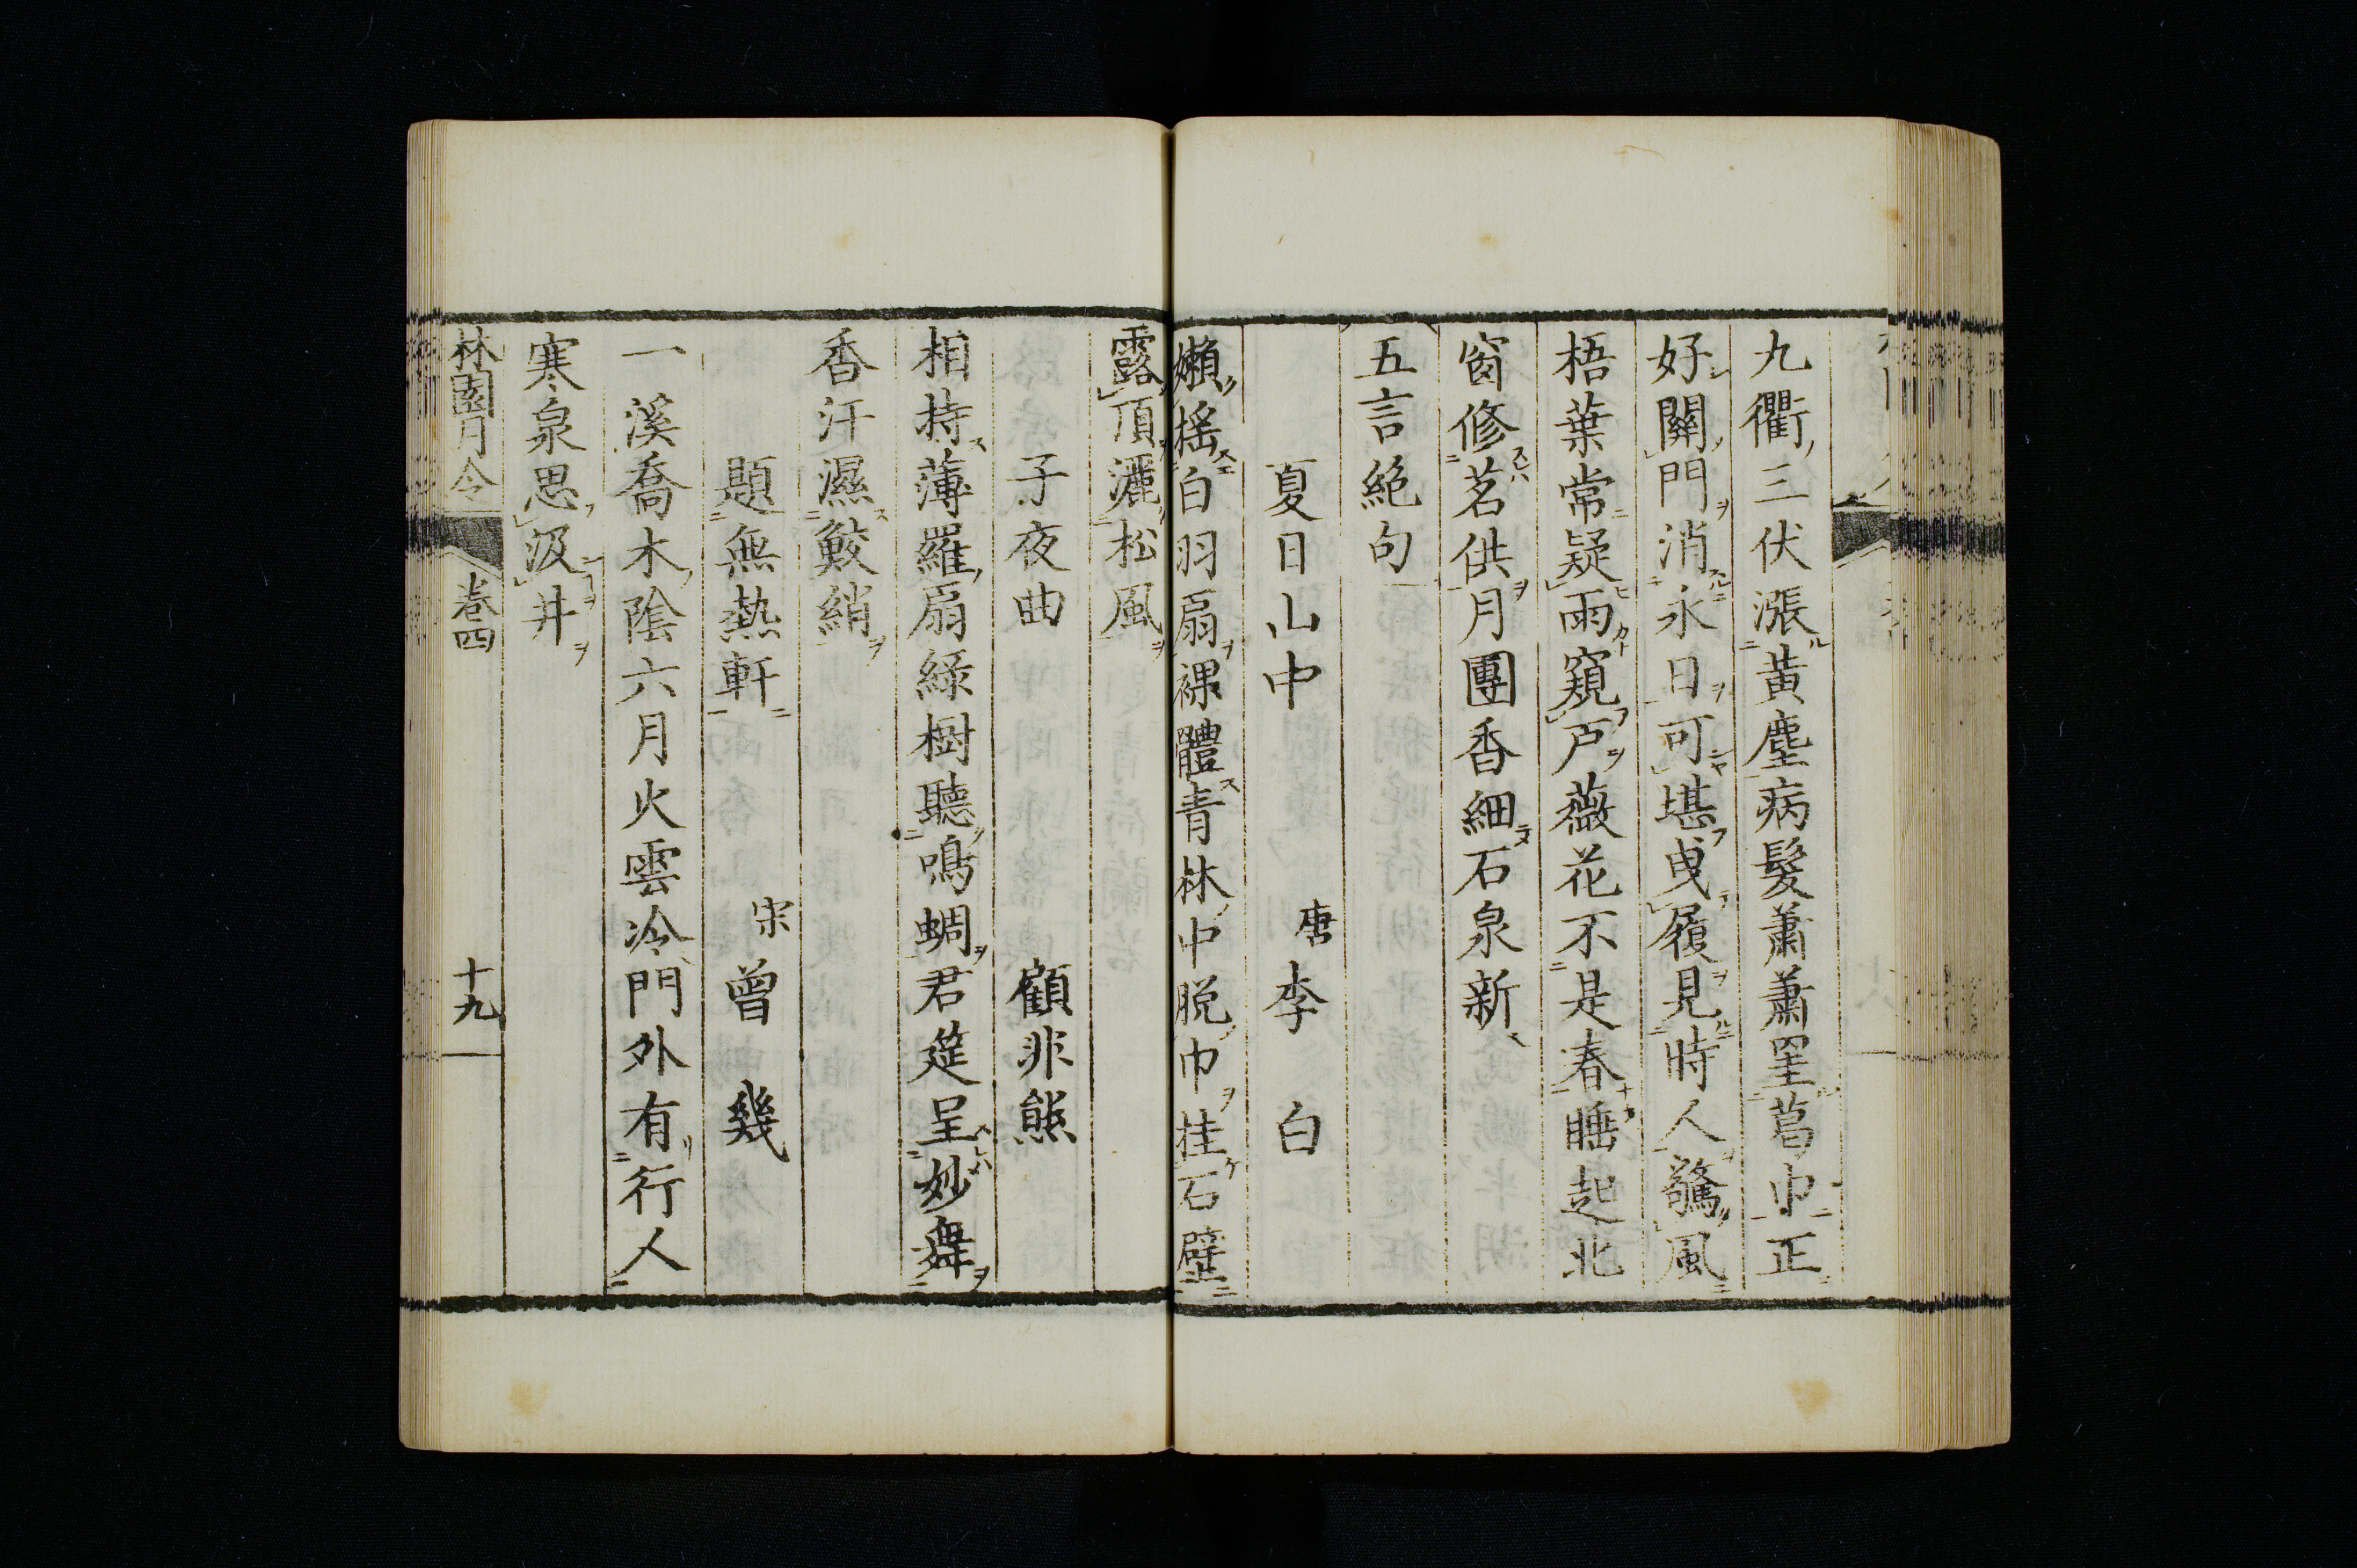 九衢三伏漲黃塵病髮蕭蕭罣葛巾正
好關門消永日可堪曳履見時人驚風
梧葉常疑雨窺戶薇花不是春睡起北
窗修茗供月團香細石泉新
五言絕句
夏日山中 唐 李白
嬾搖白羽扇裸體青林中脫巾挂石壁
露頂灑松風
子夜曲 顧非熊
相持薄羅扇綠樹聽鳴蜩君筵呈妙舞
香汗濕鮫綃
題無熱軒 宋 曾幾
一溪喬木陰六月火雲冷門外有行人
寒泉思汲井
林園月令 卷四 十九